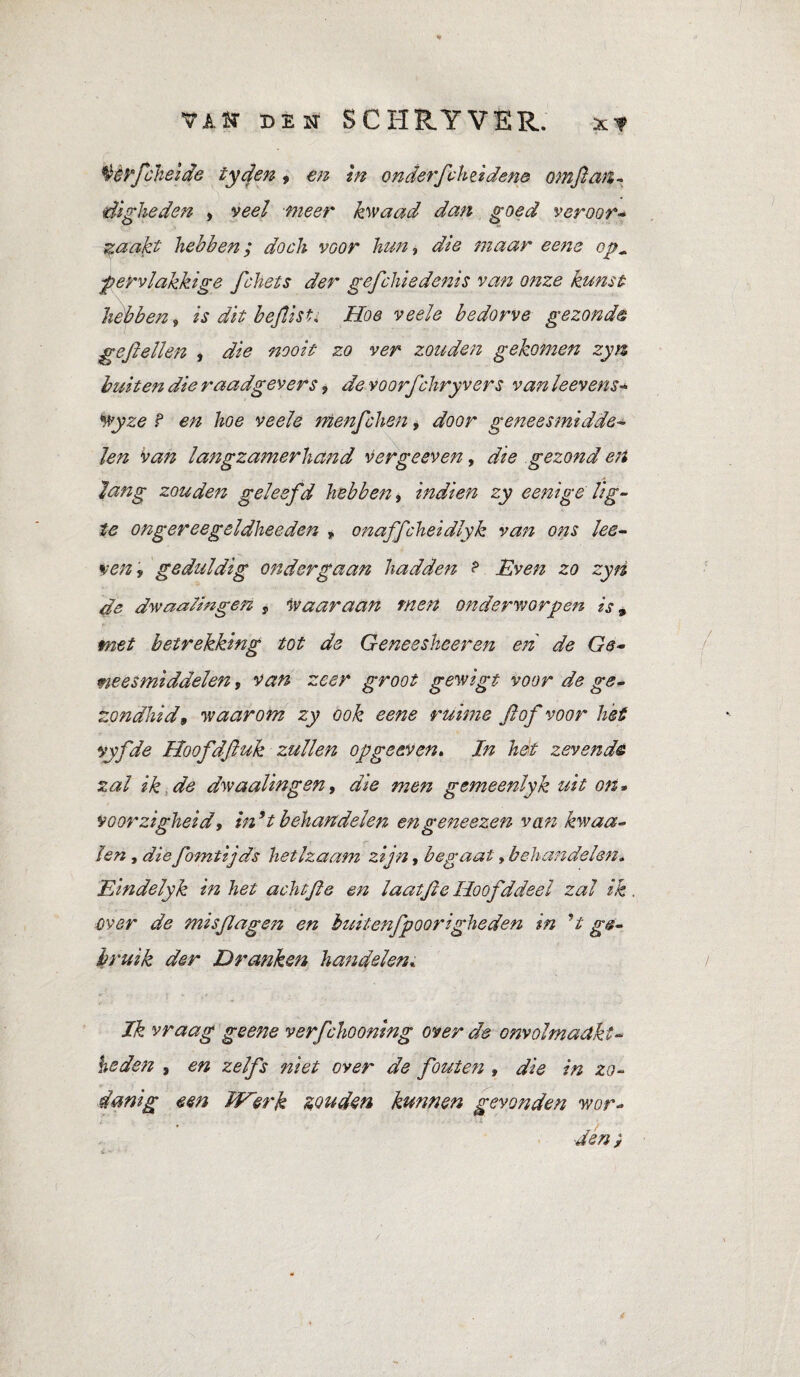 VAN DEN SCHRYVER. xv
verſcheide tyden, en in onderſcheidene omſtan-
digheden, veel meer kwaad dan goed veroor-
zaakt hebben; doch voor hun, die maar eene op-
pervlakkige ſchets der geſchiedenis van onze kunst
hebben, is dit beſlist. Hoe veele bedorve gezonde
geſtellen, die nooit zo ver zouden gekomen zyn
buiten die raadgevers, de voorſchryvers van leevens-
wyze? en hoe veele menſchen, door geneesmidde-
len van langzamerhand vergeeven, die gezond en
lang zouden geleefd hebben, indien zy eenige lig-
te ongereegeldheeden, onaffcheidlyk van ons lee-
ven, geduldig ondergaan hadden? Even zo zyn
de dwaalingen, waaraan men onderworpen is,
met betrekking tot de Geneesheeren en de Ge-
neesmiddelen, van zeer groot gewigt voor de ge-
zondhid, waarom zy ook eene ruime ſtof voor het
vyfde Hoofdſtuk zullen opgeeven. In het zevende
zal ik de dwaalingen, die men gemeenlyk uit on-
voorzigheid, in't behandelen en geneezen van kwaa-
len, die ſomtijds het lzaam zijn, begaat, behandelen.
Eindelyk in het achtſte en laatſte Hoofddeel zal ik
over de misſlagen en buitenſpoorigheden in 't ge-
bruik der Dranken handelen.
Ik vraag geene verſchooning over de onvolmaakt-
heden, en zelfs niet over de fouten, die in zo-
danig een Werk zouden kunnen gevonden wor-
den;